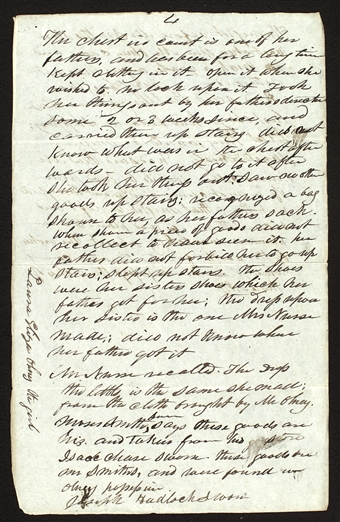 The chest in court is one of her
fathers, and has been for a long time
kept clothing in it. open it when she
wished to. no lock upon it. Took
her things out by her fathers direction
some 2 or 3 weeks since, and
carried them up stairs did not
know what was in the chest after
wards - did not go to it after
she took her things out. Saw no other
goods up stairs; recognized a bag
shown to her, as her fathers sack.
When shown a piece of goods did not
recollect to have seen it. her
father did not forbid her to go up
stairs; slept up stairs. The shoes
were her sisters shoes which her
father got for her; the dress upon
her sister is the one Mrs Nurse
made; did not know where
her father got it
Mr Nurse recalled. The dress
the little is the same she made;
from the cloth brought by Mr Olney.
says these goods are
his. and taken from his store
Isaac Chase sworn. these goods are
Mr Smiths, and were found in
Olney possession
Joseph Hadlock Sworn
Laura Eliza Olney the girl